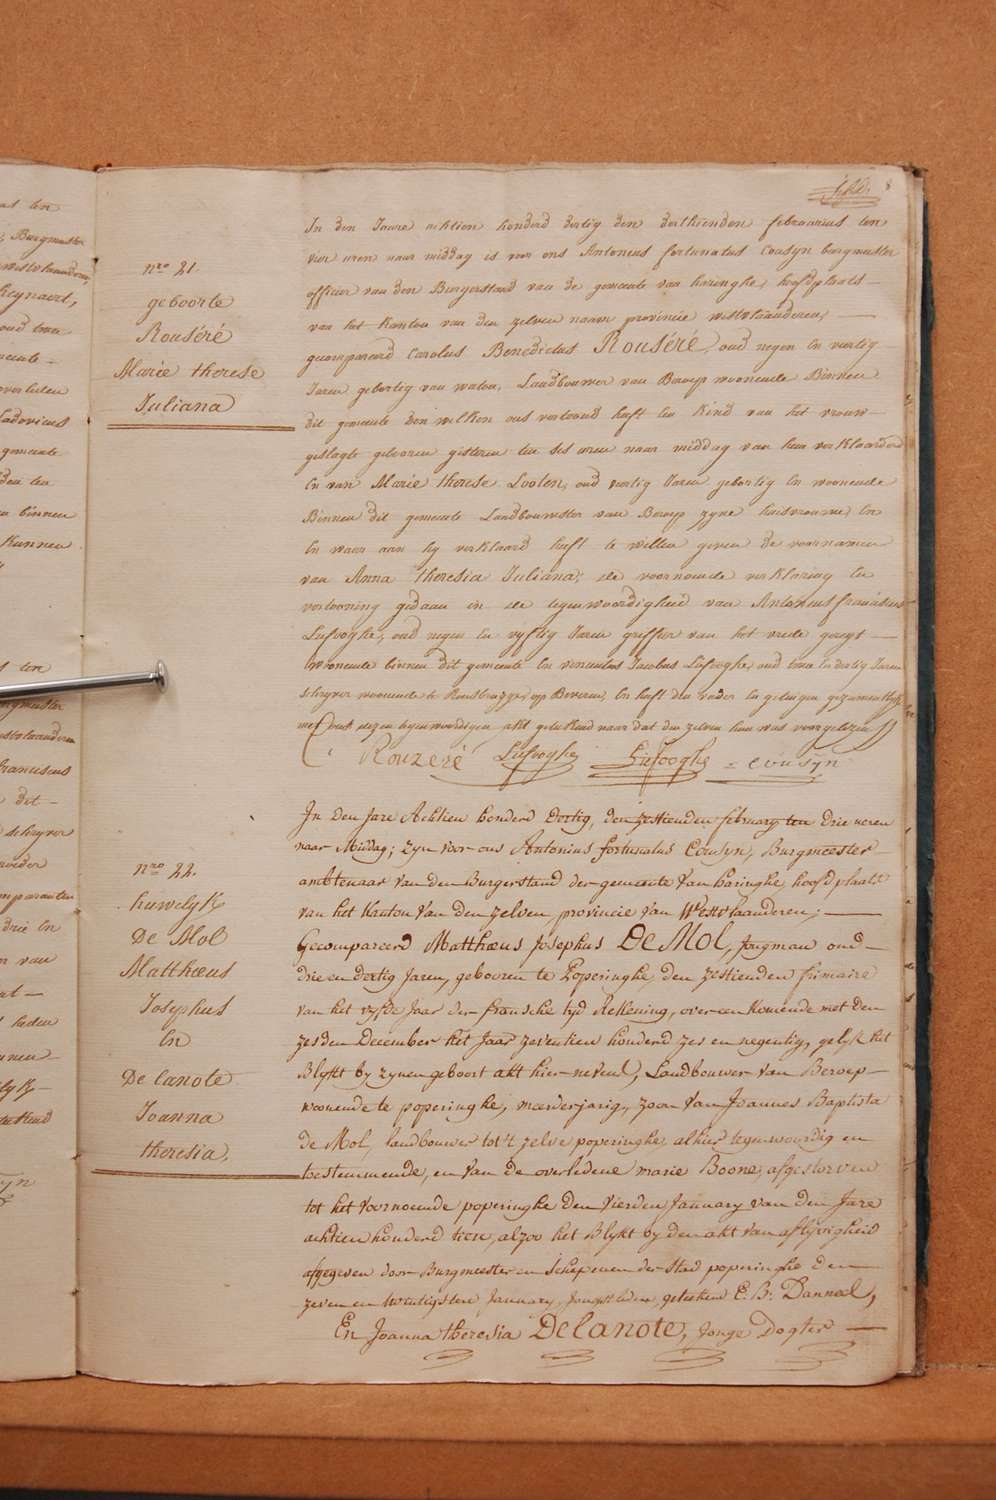 8
nro 21.
geboorte
Rouséré
Marie therese
Juliana
In den Jaare achtien honderd dertig den derthienden februarius ten
vier uren naar middag is voor ons Antonius fortunatus Cousyn burgmeester
officier van den Burgerstand van de gemeente van haringhe, hoofdplaats
van het Kanton van den zelven naam provincie westvlaanderen,
gecompareerd Carolus Benedictus Rouséré, oud negen en veertig
Jaren gebortig van watou, Landbouwer van Beroep woonende Binnen
dit gemeente den welken ons vertoond heeft een Kind van het vrouw-
geslagte geboren gisteren ten ses uren naar middag van hem verklaarder
En van Marie therese Looten, oud veertig Jaren gebortig En woonende
Binnen dit gemeente Landbouwster van Beroep zyne huisvrouwe, En
En waar aan hy verklaard heeft te willen geven de voornamen
van Anna theresia Juliana; de voornoemde verklaring En
vertooning gedaan in de tegenwoordigheid van Antonius franciscus
Liefooghe, oud negen En vyftig Jaren griffier van het vrede geregt
woonende binnen dit gemeente En Jacobus Liefooghe, oud twee En dertig Jaren
schryver woonende te Rousbrugge, op Beveren, En heeft den vader En getuigen gezamentlyk
met ons dezen tegenwoordigen akt geteekend naar dat den zelven hun was voorgelezen
Rouzeré Liefooghe Liefooghe Cousyn
nro 22.
huwelyk
De Mol
Matthæus
Josephus
En
De lanote
Joanna
theresia.
In den Jare Achtien honderd Dertig, den zestienden february ten drie uren
naar Middag; zyn voor ons Antonius fortunatus Cousyn, Burgmeester
ambtenaar van den Burgerstand der gemeente van haringhe hoofdplaats
van het Kanton van den zelven, provincie van Westvlaanderen;
Gecompareerd Matthæus Josephus De Mol, Jongman oud
drie en dertig Jaren, gebooren te Poperinghe, den zestienden frimaire
van het vyfde Jaar der fransche tyd Rekening, over-een komende met den
zesden December het Jaar zeventien honderd zes en negentig, gelyk het
Blykt by zynen geboort akt hier-nevens, Landbouwer van Beroep
woonende te poperinghe, meerderjarig, zoon van Joannes Baptista
de Mol, landbouwer tot 't zelve poperinghe, alhier tegenwoordig en
toestemmende, en van de overledene marie Boone, afgestorven
tot het voornoemde poperinghe den vierden January van den Jare
achtien honderd tien, alzoo het Blykt by den akt van aflyvigheid
afgegeven door Burgmeester en Schepenen der Stad poperinghe den
zeven en twintigsten January, Jongstleden, geteekend E. B. Dannal,
En Joanna theresia Delanote, Jonge Dogter